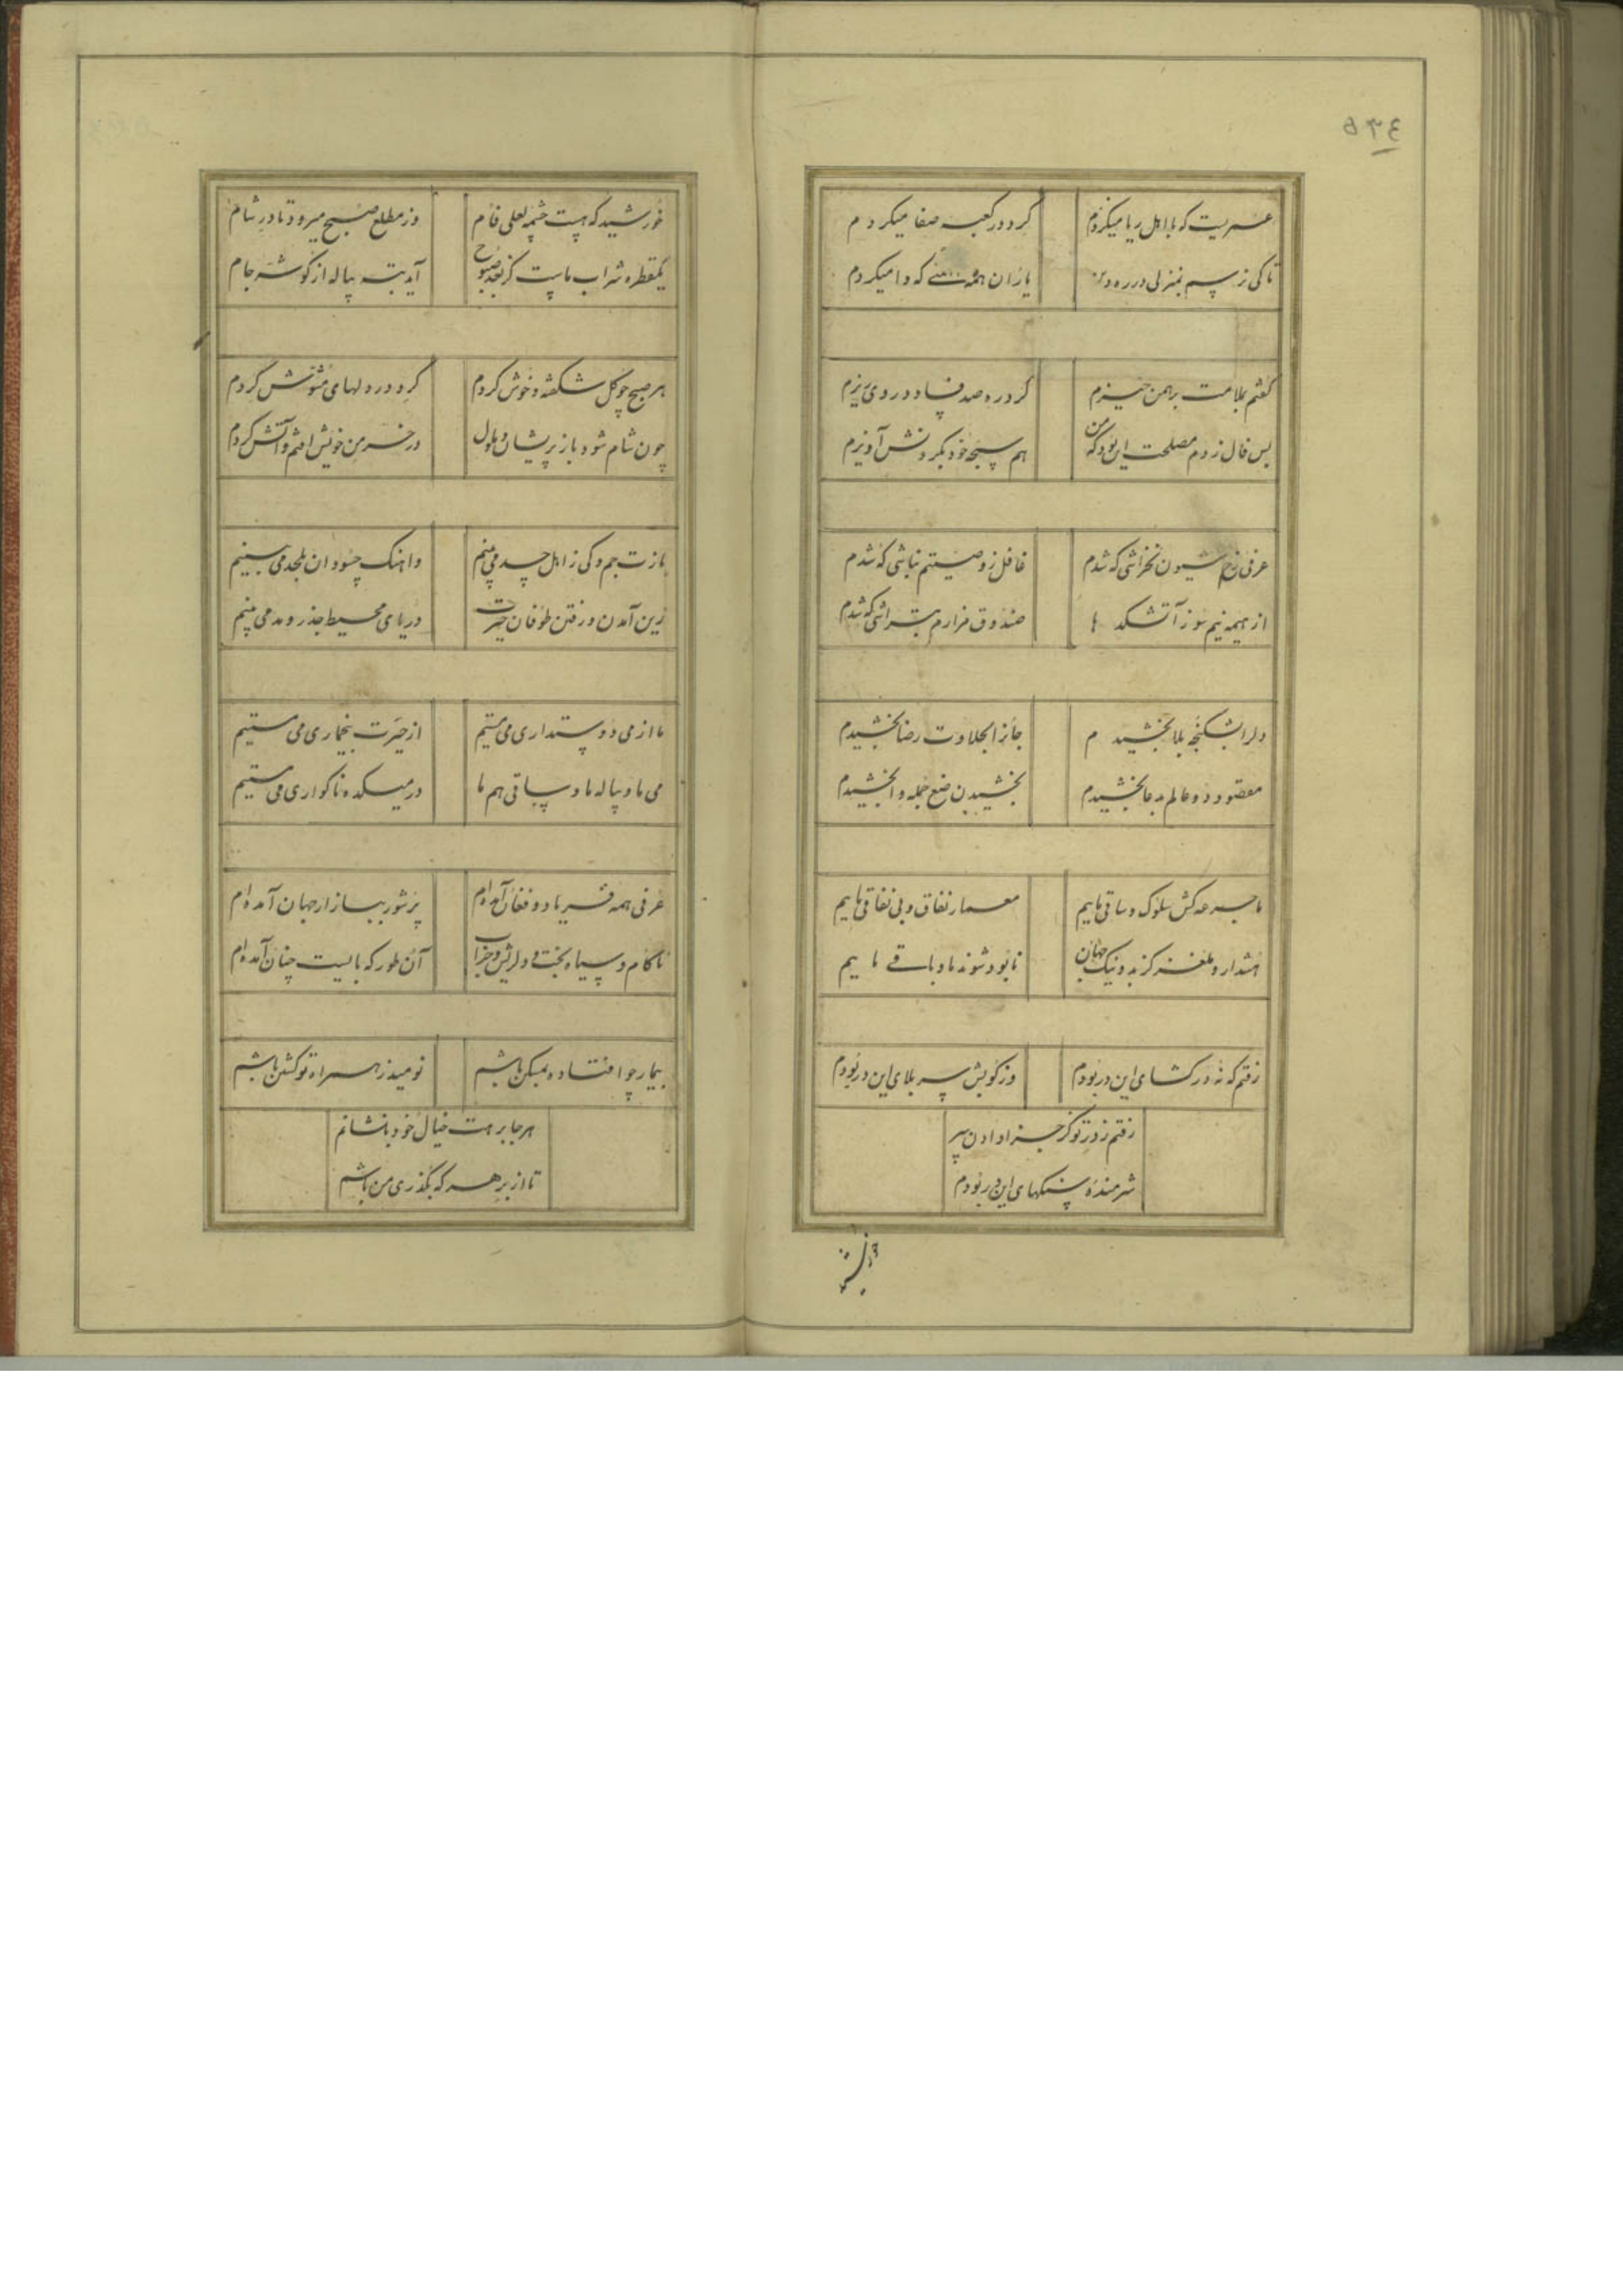 ٥٣٤
عمریست که با اهل ریا میگردم
گرد در کعبه صفا میگردم
تا کی رسم بمنزلی در ره دین
یاران همه که وا میگردم
گفتم بملامت برهمن خیزم
گرد ره صد فساد در وی بیزم
پس فال زدم مصلحت این بود که من
هم سبحه خود بگردنش آویزم
عرفی رخ شیون نخراشی که شدم
غافل ز وصیتم نباشی که شدم
از هیمه نیم سوز آتشکده ها
صندوق مزارم بتراشی که شدم
دلرا بشکنجه بلا بخشیدم
جانرا بحلاوت رضا بخشیدم
مقصود دو عالم بدعا بخشیدم
بخشیدن جمله وا بخشیدم
ما جرعه کش سلوک و ساقی ماییم
معمار نفاق و بی نفاقی ماییم
هشدار و ملغز کز بد و نیک جهان
نابود شوند ما و باقی ماییم
رفتم که نه در کشای این در بودم
وز کویش سر بلای این در بودم
رفتم ز در تو کز جزا دادن سر
شرمنده سنگهای این در بودم
خورشید
خورشید که هست چشمه لعلی فام
وز مطلع صبح میرود تا در شام
یکقطره شراب ماست کز بعد صبوح
آید بته پیاله از گوشه جام
هر صبح چو گل شکفته و خوش گردم
گرد در دلهای مشوش گردم
چون شام شود باز پریشان و ملول
در خرمن خویش افتم و آتش گردم
باز جم و کی ز اهل چد می بینم
وا هنک چسود ان بلحد می بینم
زین آمدن و رفتن طوفان حیرت
دریای محیط جذر و مد می بینم
ما از می دوستداری می مستیم
از حیرت بیخماری می مستیم
می ما و پیاله ما و ساقی هم ما
در میکده ناگواری می مستیم
عرفی همه فریاد و فغان آمده ام
پرشور ببازار جهان آمده ام
ناکام و سیاه بخت و دلریش و خراب
آن طور که بایست چنان آمده ام
بیمار چو افتاده بمسکن باشم
نومید ز همراه تو گشتن باشم
هر جا برهت خیال خود بنشانم
تا از بر هر که بگذری من باشم